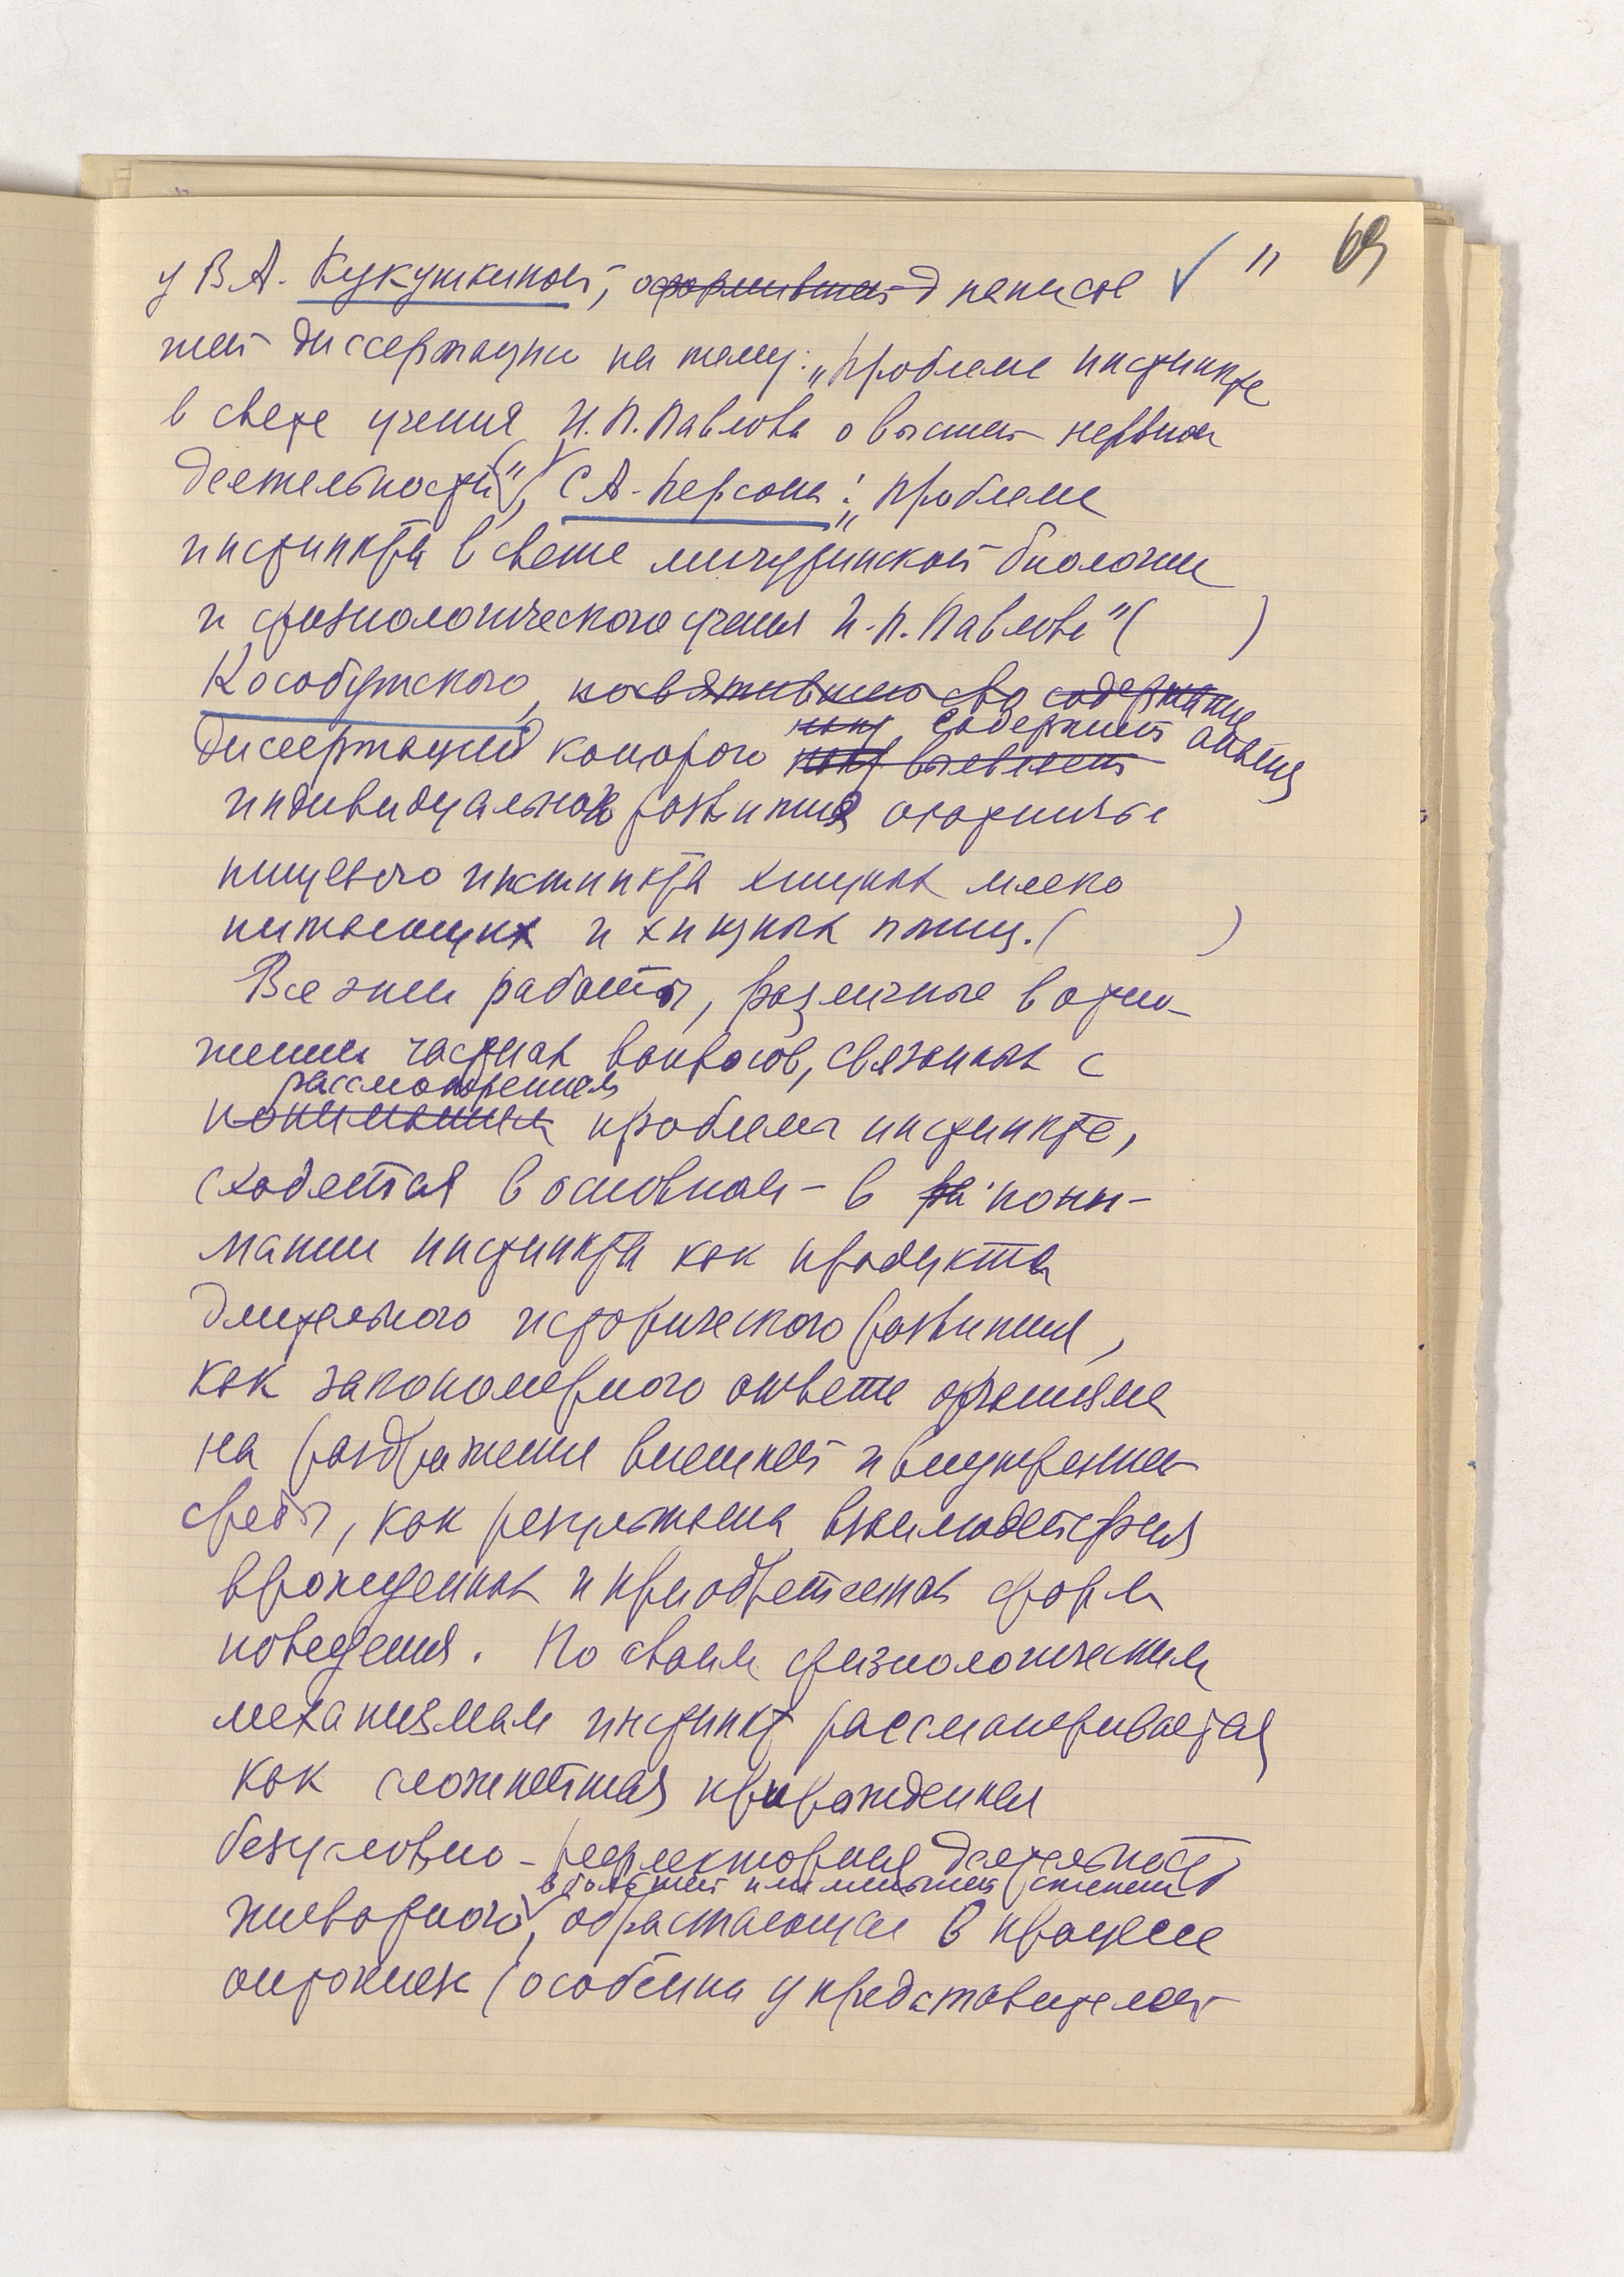 у В.А. Кукушкиной, написав ✓ " 69
шей диссертацию на тему: „Проблема инстинкта
в свете учения И.П. Павлова о высшей нервной
деятельности" ( ), С.А. Персона: „Проблема
инстинкта в свете мичуринской биологии
и физиологического учения И.П. Павлова" ( )
Кособутского, посвятившего содержание
содержит анализ
диссертация которого выявляет
индивидуального развития
пищевого инстинкта хищных млеко
питающих и хищных птиц. ( )
Все эти работы, различные в отно-
шении частных вопросов, связанных с
рассмотрением
пониманием проблемы инстинкта,
сходятся в основном – в пони-
мании инстинкта как продукта
длительного исторического развития,
как закономерного ответа организма
на раздражения внешней и внутренней
среды, как результата взаимодействия
врожденных и приобретаемых форм
поведения. По своим физиологическим
механизмам инстинкт рассматривается
как сложнейшая прирожденная
безусловно-рефлекторная деятельность
в большей или меньшей степени
животного, обрастающая в процессе
онтогенеза (особенно у представителей